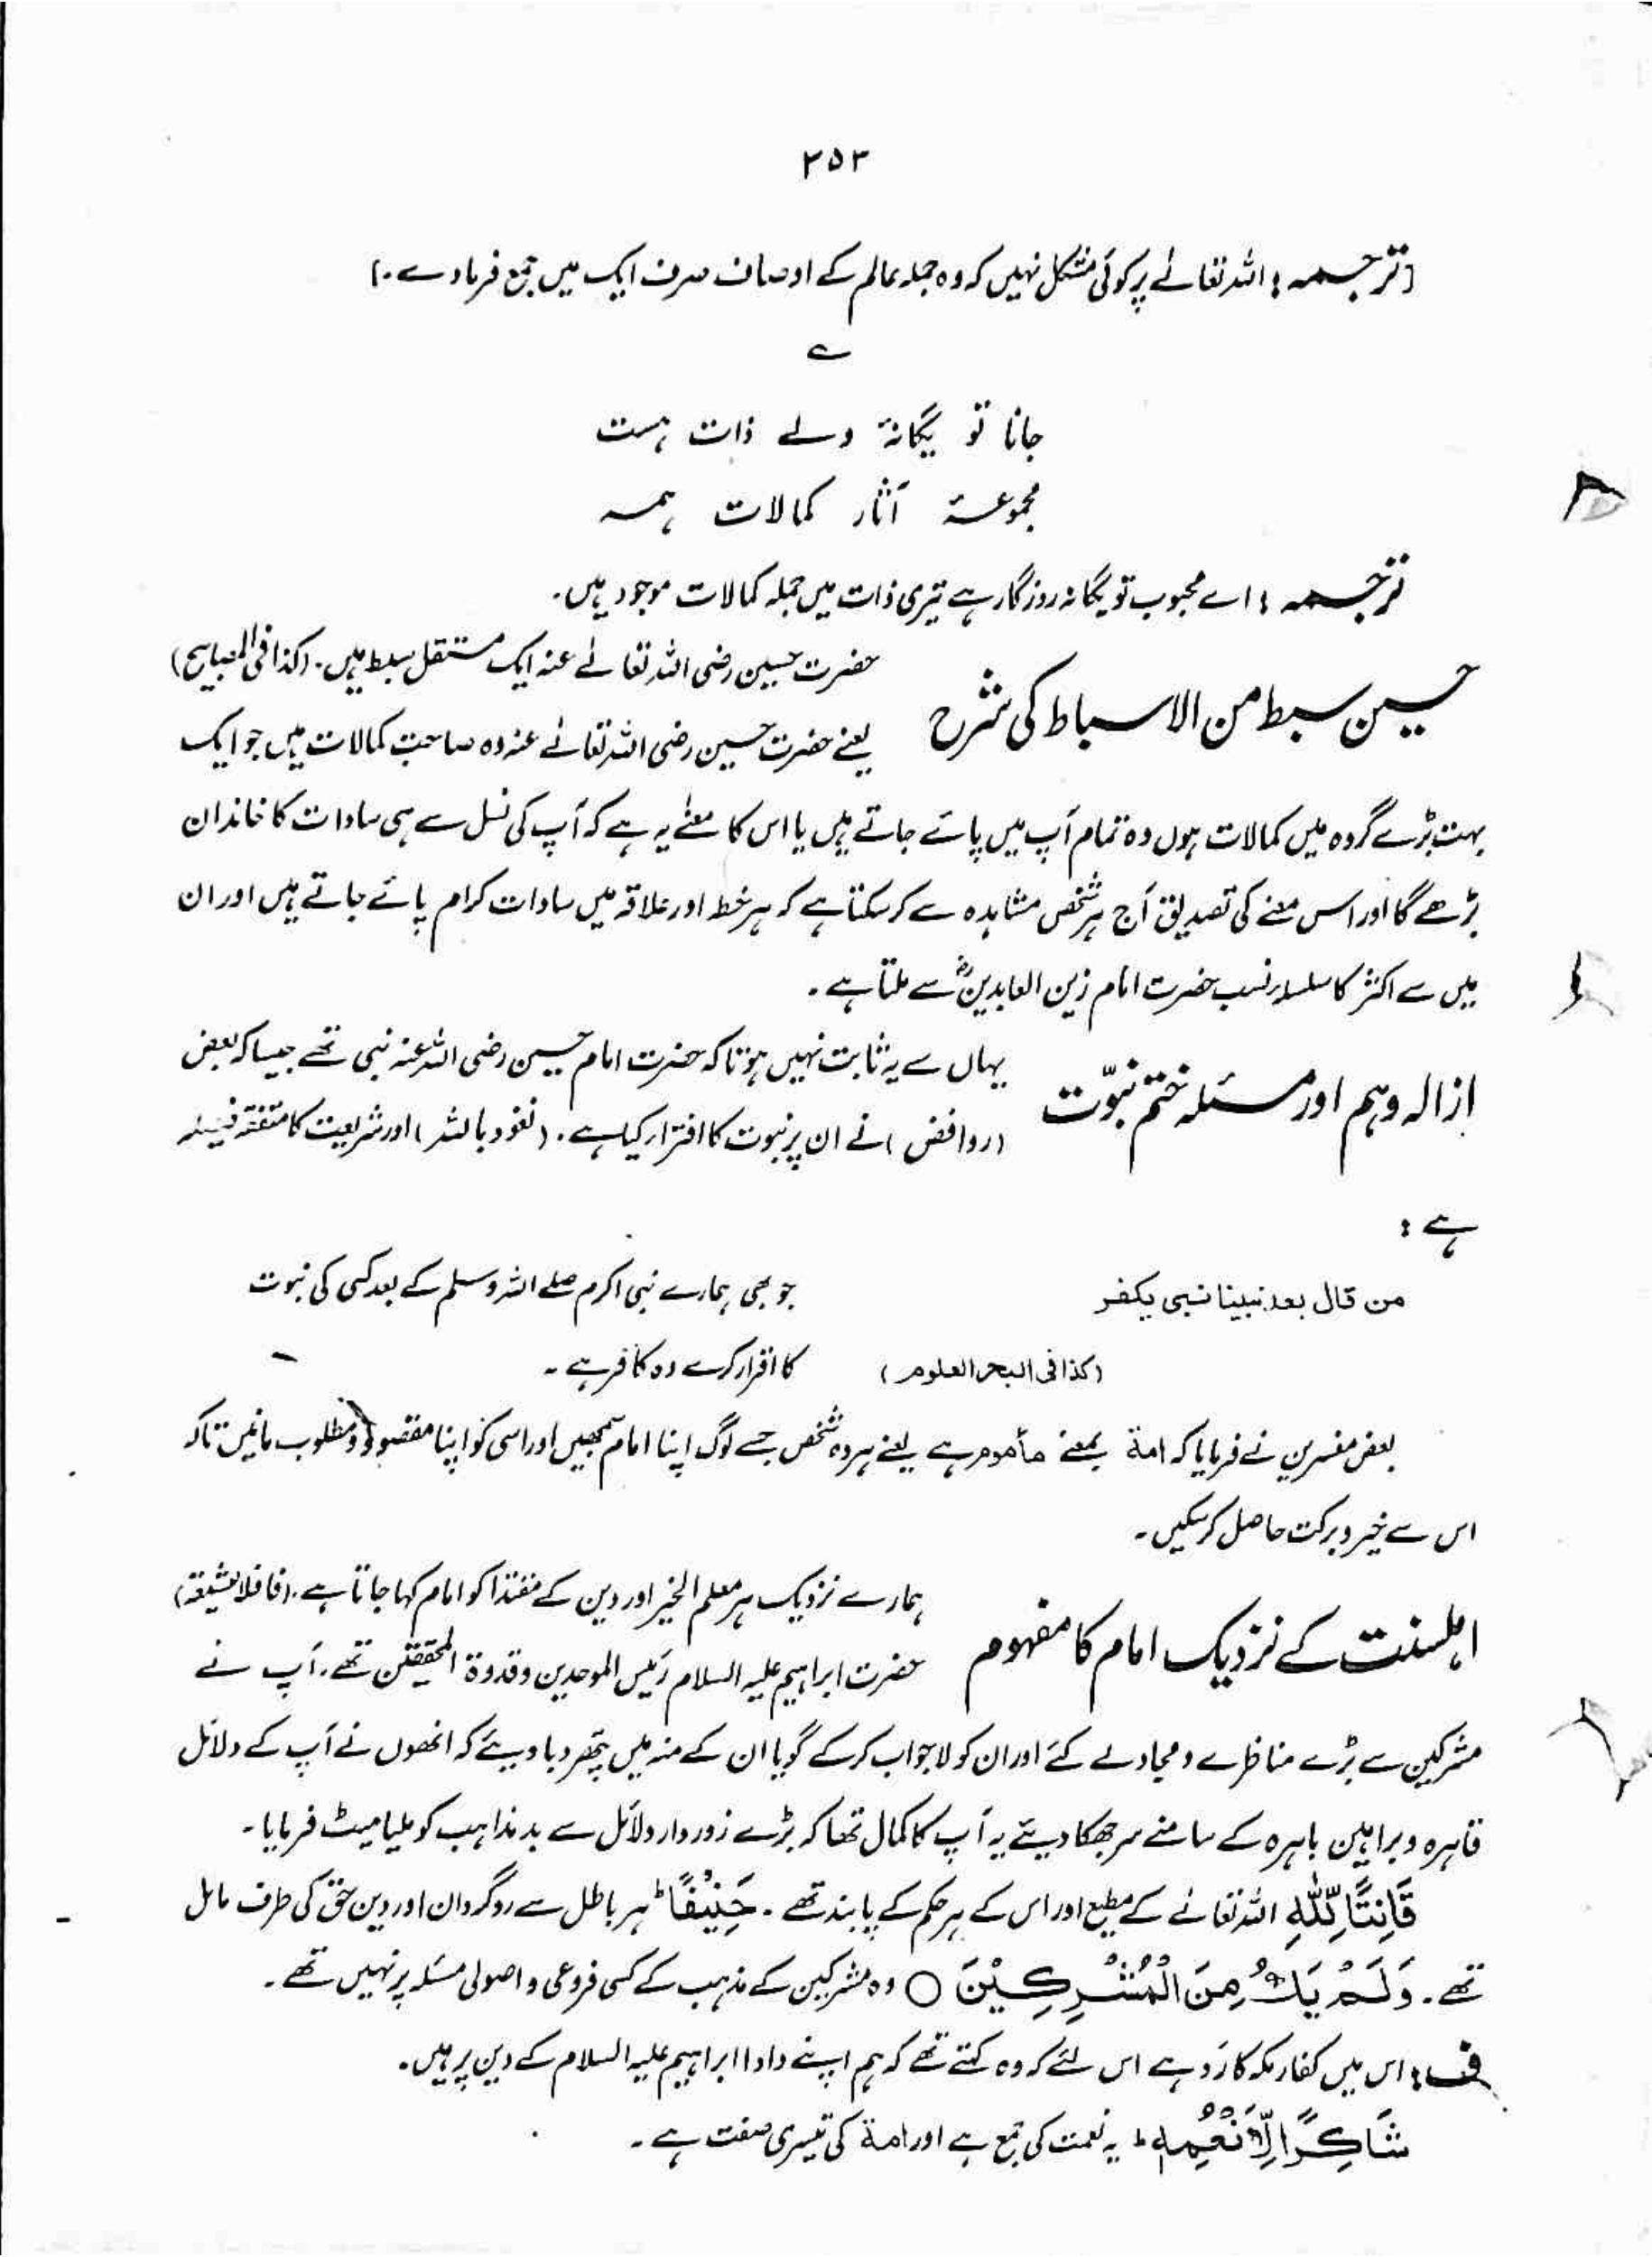 ۲۵۳
[ترجمہ : اللہ تعالےٰ پر کوئی مشکل نہیں کہ وہ جملہ عالم کے اوصاف صرف ایک میں جمع فرما دے۔]
ے
جانا تو یگانۂ ولے ذات ہست
مجموعۂ آثار کمالات ہمہ
ترجمہ : اے محبوب تو یگانہ روزگار ہے تیری ذات میں جملہ کمالات موجود ہیں۔
حسین سبط من الاسباط کی شرح
حضرت حسین رضی اللہ تعالےٰ عنہ ایک مستقل سبط ہیں۔ (کذا فی المصابیح)
یعنے حضرت حسین رضی اللہ تعالےٰ عنہ وہ صاحبِ کمالات ہیں جو ایک
بہت بڑے گروہ میں کمالات ہوں وہ تمام آپ میں پائے جاتے ہیں یا اس کا معنےٰ یہ ہے کہ آپ کی نسل سے ہی سادات کا خاندان
بڑھے گا اور اس معنے کی تصدیق آج ہر شخص مشاہدہ سے کر سکتا ہے کہ ہر خطہ اور علاقہ میں سادات کرام پائے جاتے ہیں اور ان
میں سے اکثر کا سلسلہ نسب حضرت امام زین العابدینؓ سے ملتا ہے۔
ازالہ وہم اور مسئلہ ختم نبوّت
یہاں سے یہ ثابت نہیں ہوتا کہ حضرت امام حسین رضی اللہ عنہ نبی تھے جیسا کہ بعض
(روافض) نے ان پر نبوت کا افترا کیا ہے۔ (نعوذ باللہ) اور شریعت کا متفقہ فیصلہ
ہے :
من قال بعد نبینا نبی یکفر
جو بھی ہمارے نبی اکرم صلے اللہ وسلم کے بعد کسی کی نبوت
(کذا فی البحر العلوم)
کا اقرار کرے وہ کافر ہے۔
بعض مفسرین نے فرمایا کہ امۃ بمعنے مأموم ہے یعنے ہر وہ شخص جسے لوگ اپنا امام سمجھیں اور اسی کو اپنا مقصود و مطلوب مانیں تاکہ
اس سے خیر و برکت حاصل کر سکیں۔
اہلسنت کے نزدیک امام کا مفہوم
ہمارے نزدیک ہر معلم الخیر اور دین کے مقتدا کو امام کہا جاتا ہے۔
حضرت ابراہیم علیہ السلام رئیس الموحدین و قدوۃ المحققین تھے۔ آپ نے
مشرکین سے بڑے مناظرے و مجادلے کئے اور ان کو لاجواب کر کے گویا ان کے منہ میں پتھر دبا دیئے کہ انھوں نے آپ کے دلائل
قاہرہ و براہین باہرہ کے سامنے سر جھکا دیئے یہ آپ کا کمال تھا کہ بڑے زوردار دلائل سے بد مذاہب کو ملیامیٹ فرمایا۔
قَانِتًا لِّلّٰهِ اللہ تعالےٰ کے مطیع اور اس کے ہر حکم کے پابند تھے۔ حَنِيْفًا ط ہر باطل سے روگردان اور دین حق کی طرف مائل
تھے۔ وَلَمْ يَكُ مِنَ الْمُشْرِكِيْنَ ○ وہ مشرکین کے مذہب کے کسی فروعی و اصولی مسئلہ پر نہیں تھے۔
ف : اس میں کفار مکہ کا رَد ہے اس لئے کہ وہ کہتے تھے کہ ہم اپنے دادا ابراہیم علیہ السلام کے دین پر ہیں۔
شَاكِرًا لِّاَنْعُمِهٖ ط یہ نعمت کی جمع ہے اور امۃ کی تیسری صفت ہے۔